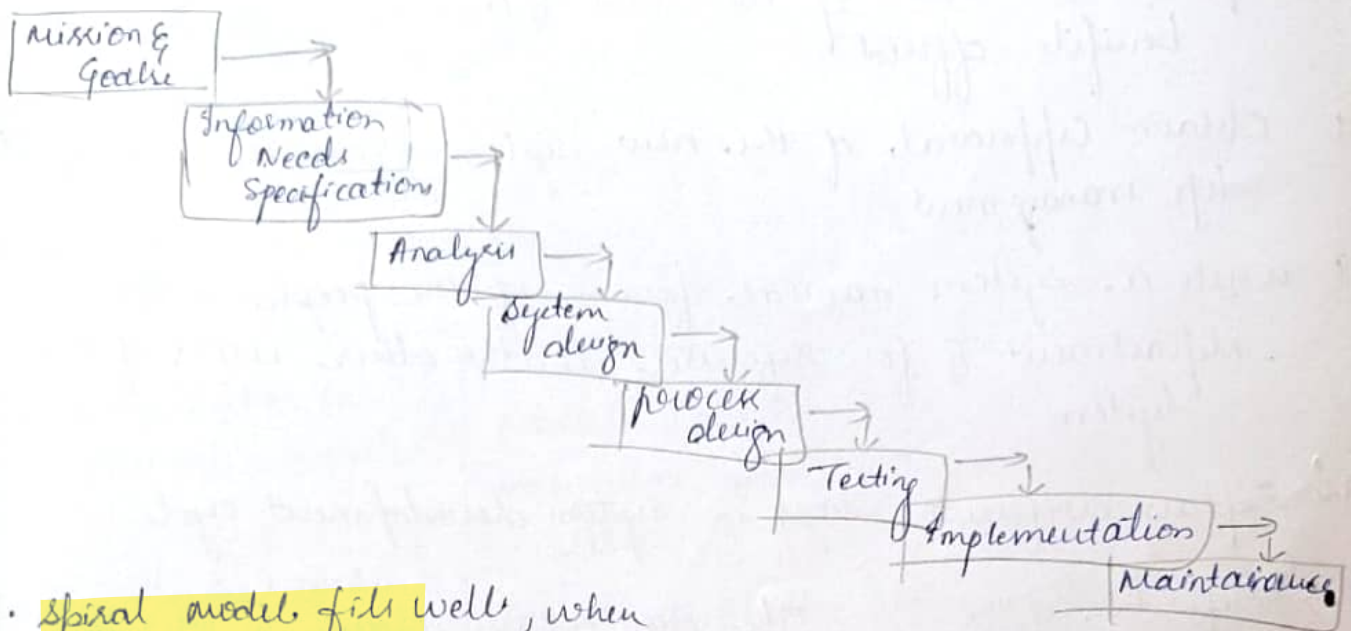 Mission &
Goals
Information
Needs
Specifications
Analysis
System
design
process
design
Testing
Implementation
Maintainance
• spiral model fits well, when